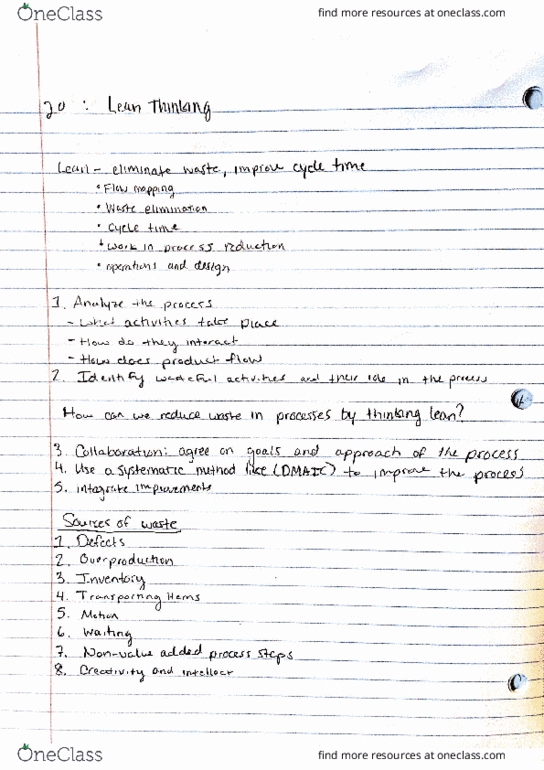 OneClass find more resources at oneclass.com
20 : Lean Thinking
Lean - eliminate waste, improve cycle time
• Flow mapping
• Waste elimination
• cycle time
• work in process reduction
• operations and design
1. Analyze the process
- What activities take place
- How do they interact
- How does product flow
2. Identify wasteful activities and their role in the process
How can we reduce waste in processes by thinking lean?
3. Collaboration: agree on goals and approach of the process
4. Use a systematic method like (DMAIC) to improve the process
5. integrate improvements
Sources of waste
1. Defects
2. Overproduction
3. Inventory
4. Transporting Items
5. Motion
6. Waiting
7. Non-value added process steps
8. Creativity and intellect
OneClass find more resources at oneclass.com